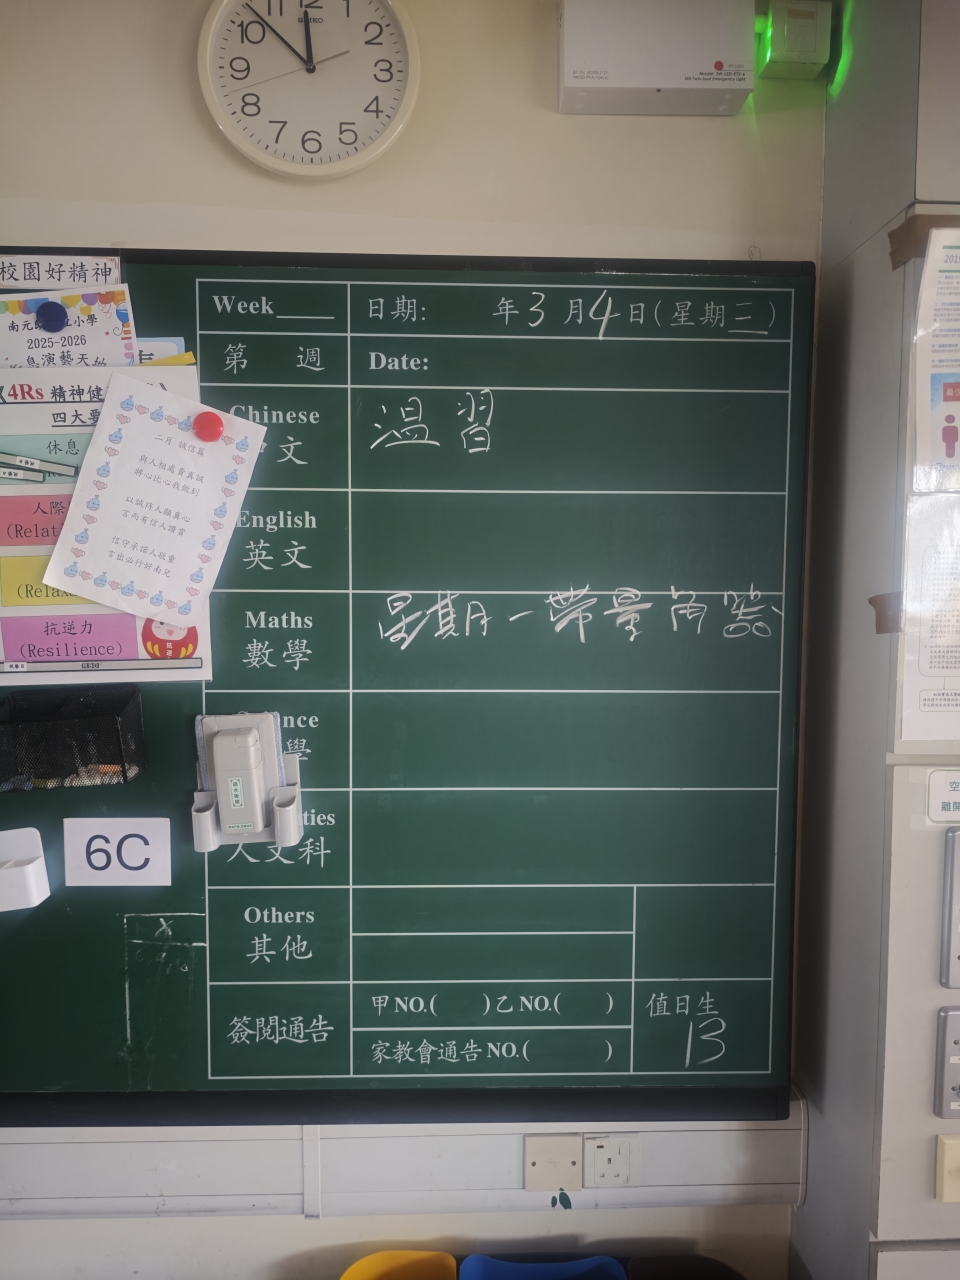 11 12 1
10 2
9 3
8 4
7 6 5
SEIKO
校園好精神
2025-2026
息演藝天
4Rs 精神健
四大要
休息
人際
抗逆力
(Resilience)
二月 誠信篇
與人相處貴真誠
將心比心我做到
以誠待人顯真心
言而有信人讚賞
信守承諾人敬重
言出必行好南兒
6C
Week
日期: 年3月4日(星期三)
第 週
Date:
Chinese
文
溫習
English
英文
Maths
數學
星期一帶量角器
學
人文科
Others
其他
簽閱通告
甲NO.( )乙NO.( )
家教會通告NO.( )
值日生
13
離開